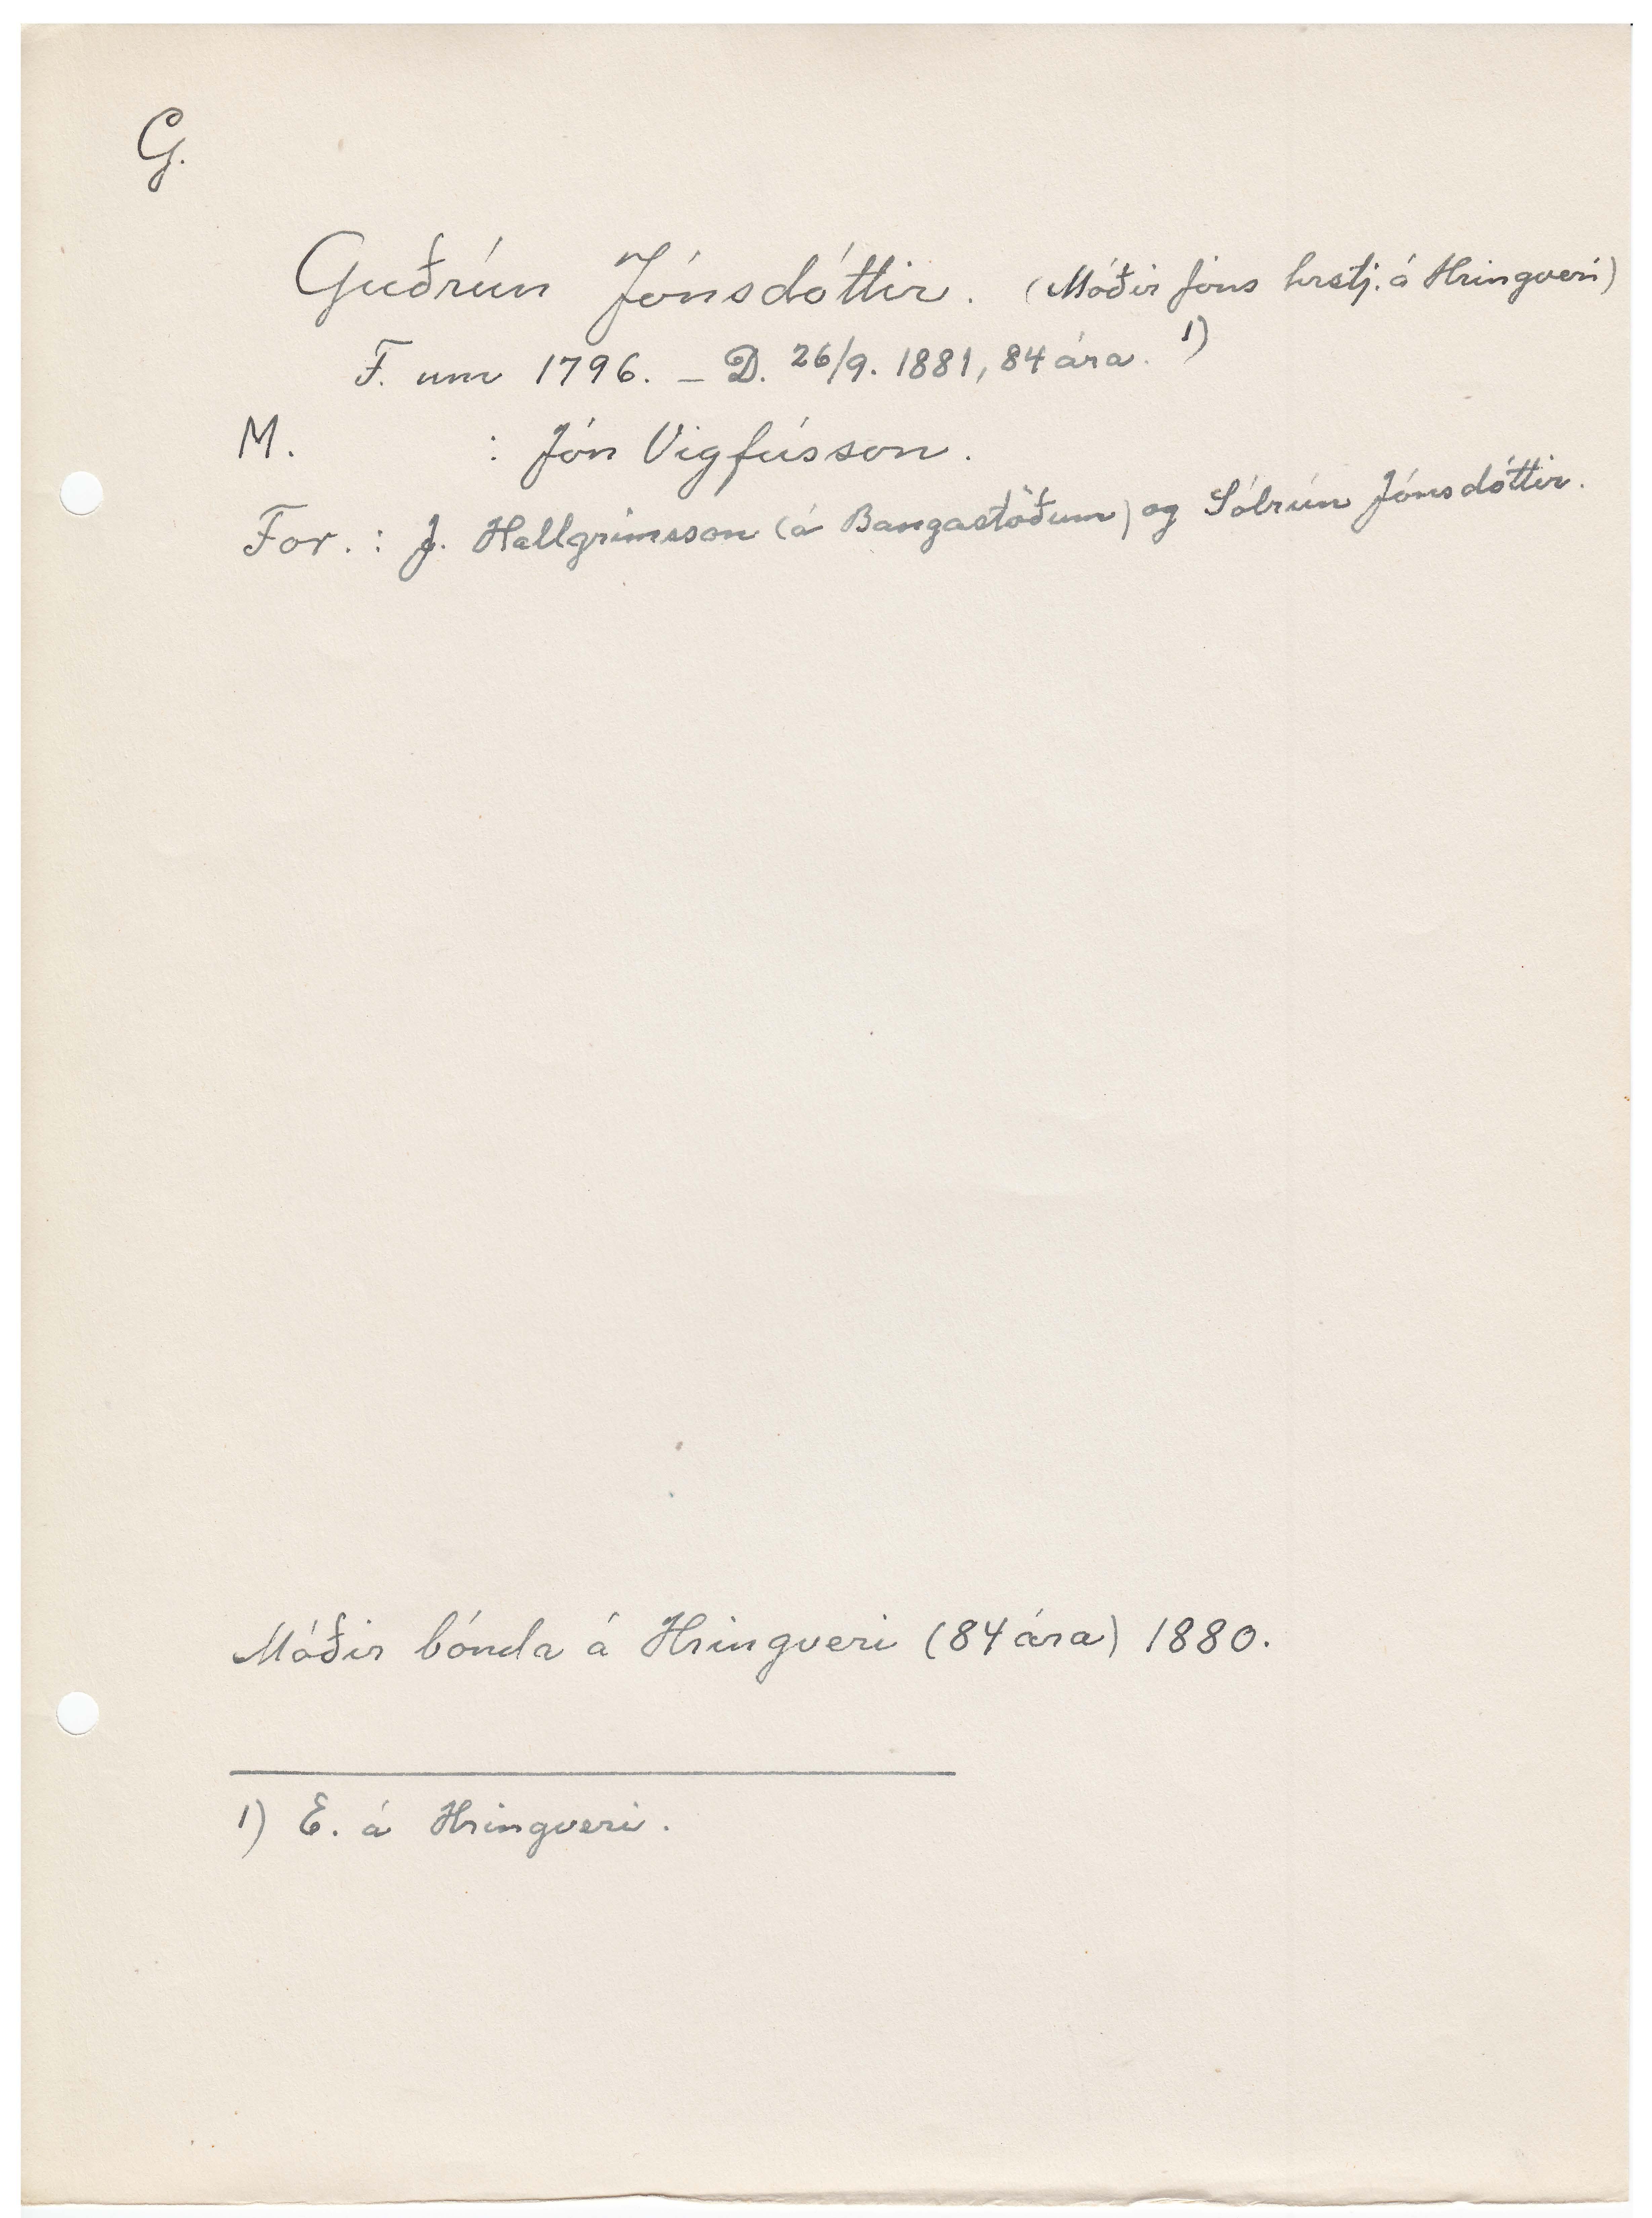 G.
Guðrún Jónsdóttir. (Móðir Jóns hrstj. á Hringveri)
F. um 1796. – D. 26/9. 1881, 84 ára. 1)
M. : Jón Vigfússon.
For. : J. Hallgrímsson (á Bangastöðum) og Sólrún Jónsdóttir.
Móðir bónda á Hringveri (84 ára) 1880.
1) E. á Hringveri.